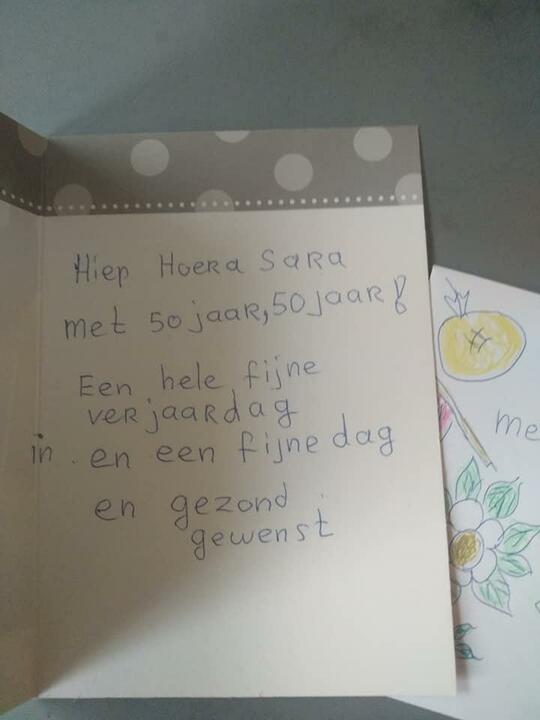 Hiep Hoera Sara
met 50 jaar, 50 jaar!
Een hele fijne
verjaardag
in en een fijne dag
en gezond
gewenst
me